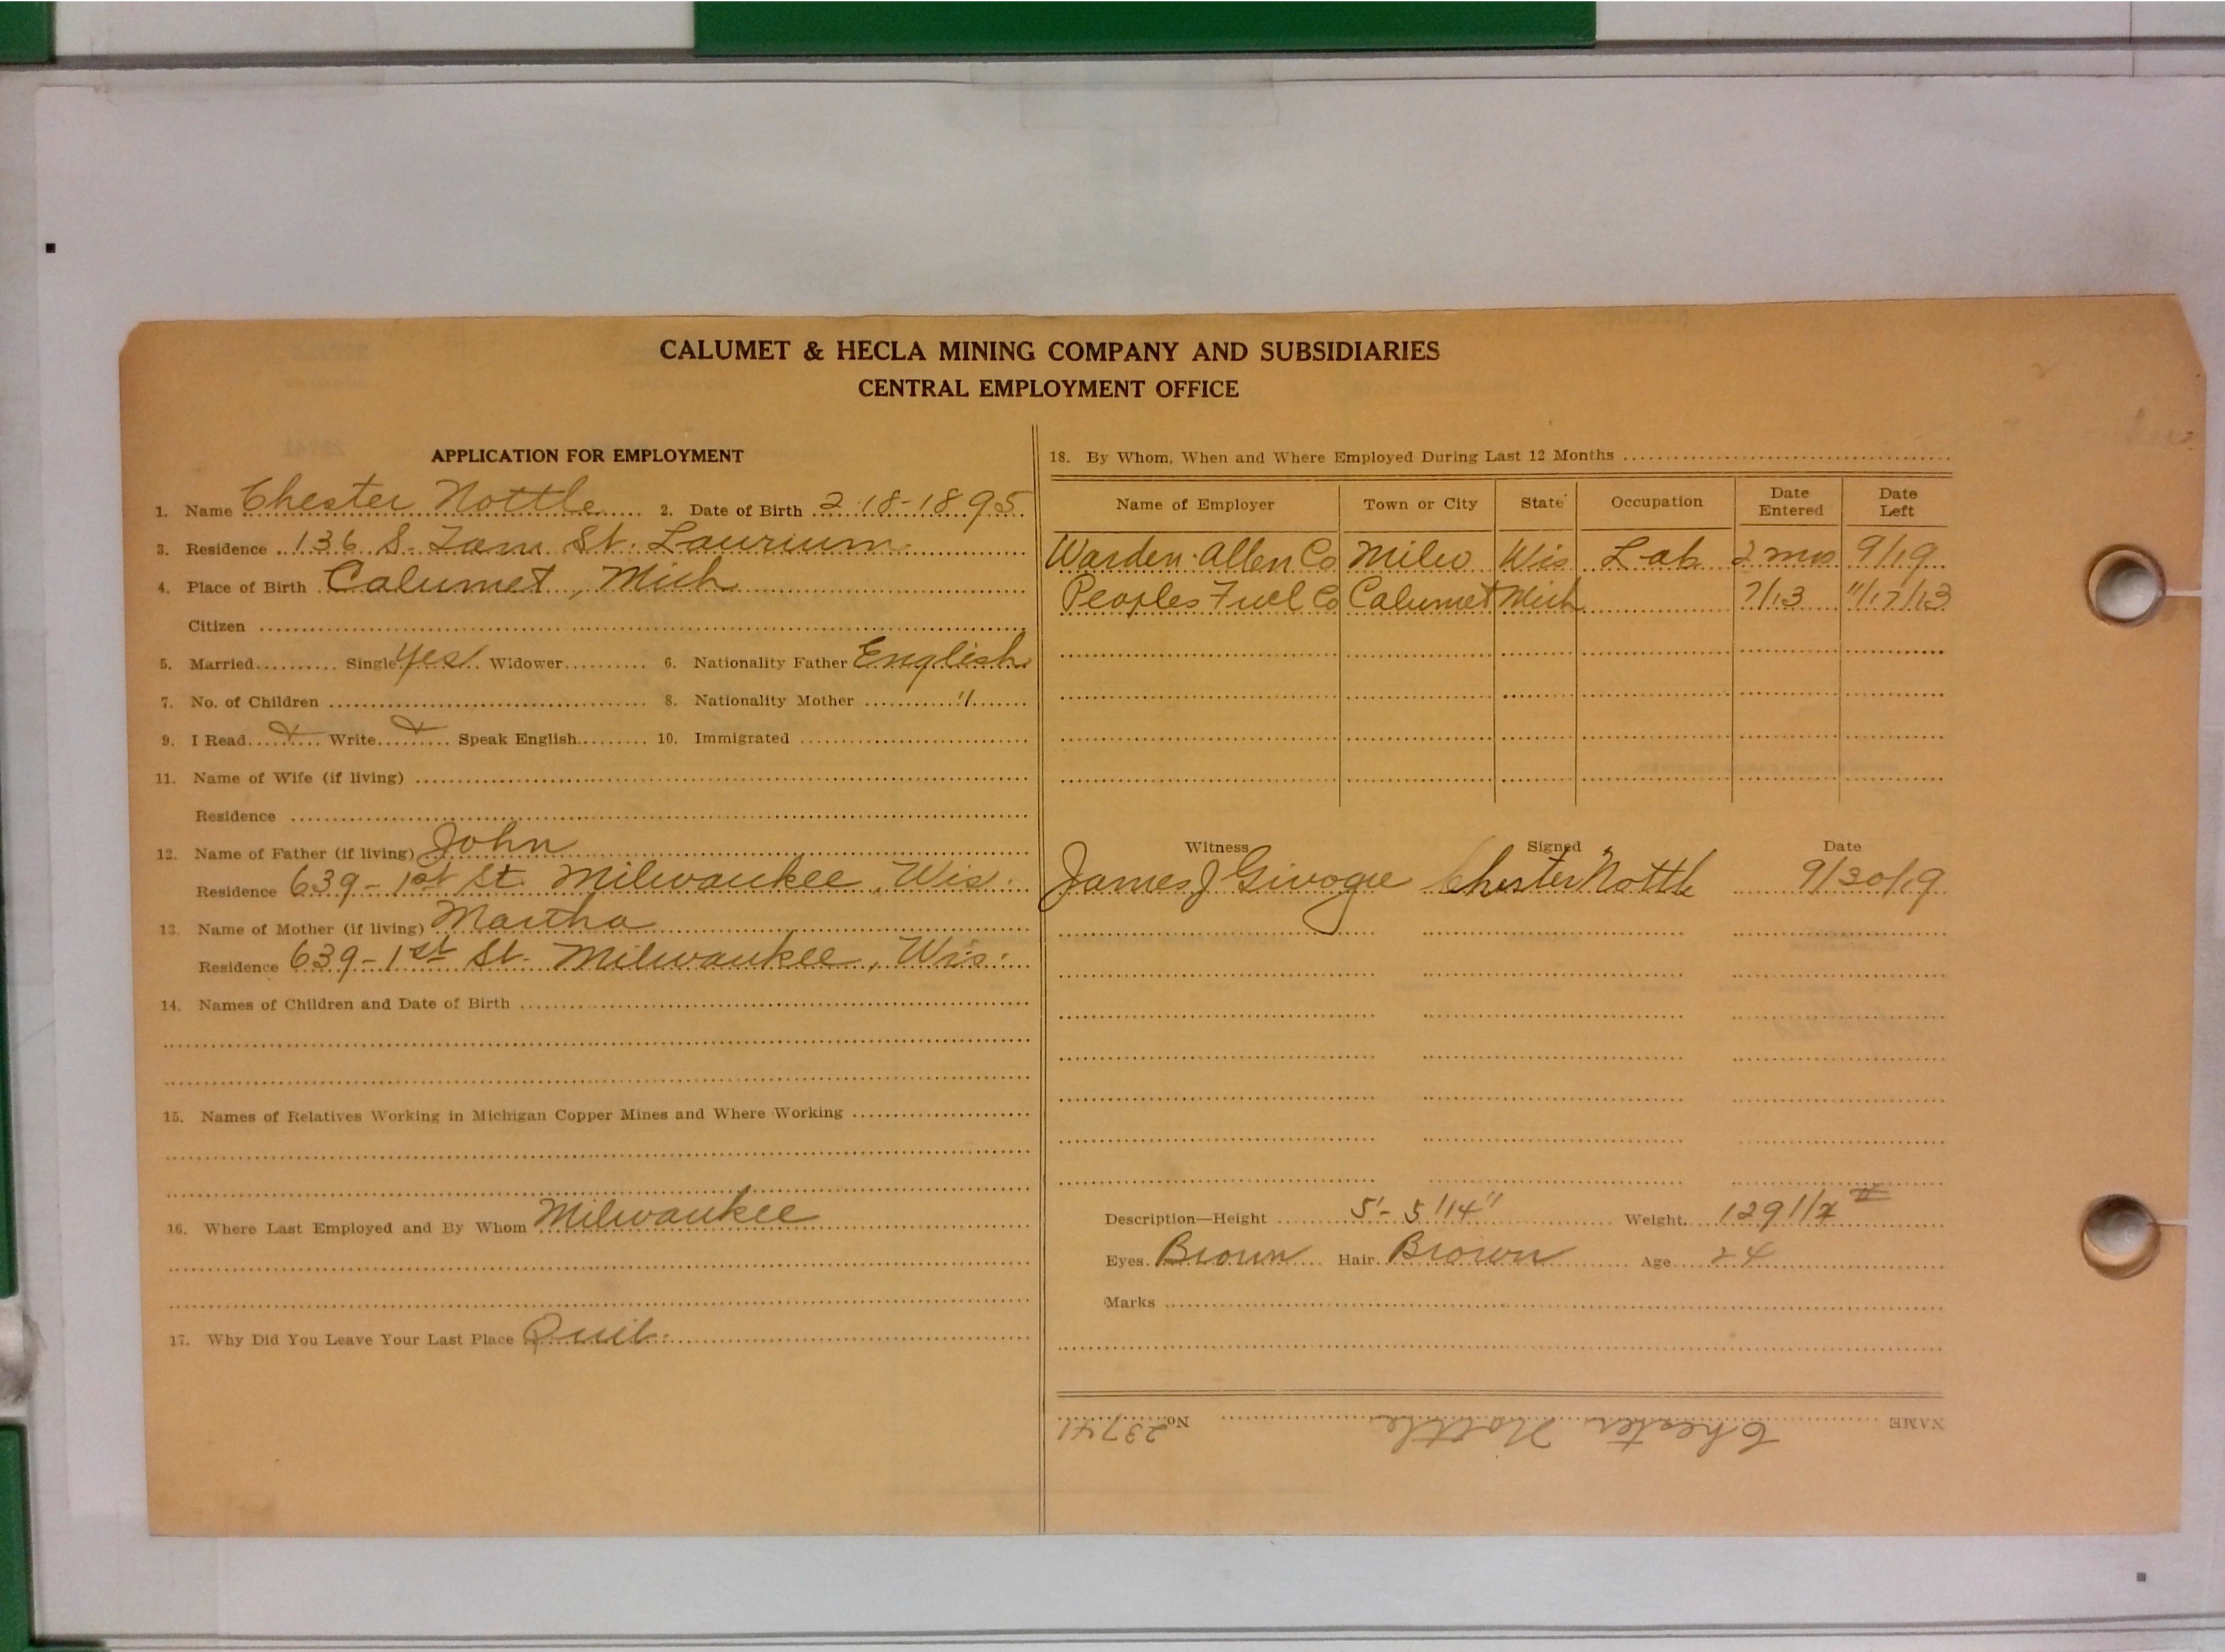 CALUMET & HECLA MINING COMPANY AND SUBSIDIARIES
CENTRAL EMPLOYMENT OFFICE
APPLICATION FOR EMPLOYMENT
1. Name Chester Nottle 2. Date of Birth 2-18-1895
3. Residence 136 S. Tam. St. Laurium
4. Place of Birth Calumet, Mich
Citizen
5. Married Single Yes Widower 6. Nationality Father English
7. No. of Children 8. Nationality Mother "
9. I Read Write Speak English 10. Immigrated
11. Name of Wife (if living)
Residence
12. Name of Father (if living) John
Residence 639 - 1st St. Milwaukee, Wis.
13. Name of Mother (if living) Martha
Residence 639 - 1st St. Milwaukee, Wis.
14. Names of Children and Date of Birth
15. Names of Relatives Working in Michigan Copper Mines and Where Working
16. Where Last Employed and By Whom Milwaukee
17. Why Did You Leave Your Last Place Quit.
18. By Whom, When and Where Employed During Last 12 Months
Name of Employer Town or City State Occupation Date Entered Date Left
Warden-Allen Co Milw Wis Lab 2 mos 9/19
Peoples Fuel Co Calumet Mich 7/13 11/17/13
Witness Signed Date
James J Chester Nottle 9/30/19
Description—Height 5'-5 1/4" Weight 129 1/2 #
Eyes Brown Hair Brown Age 24
Marks
NAME Chester Nottle No. 23741